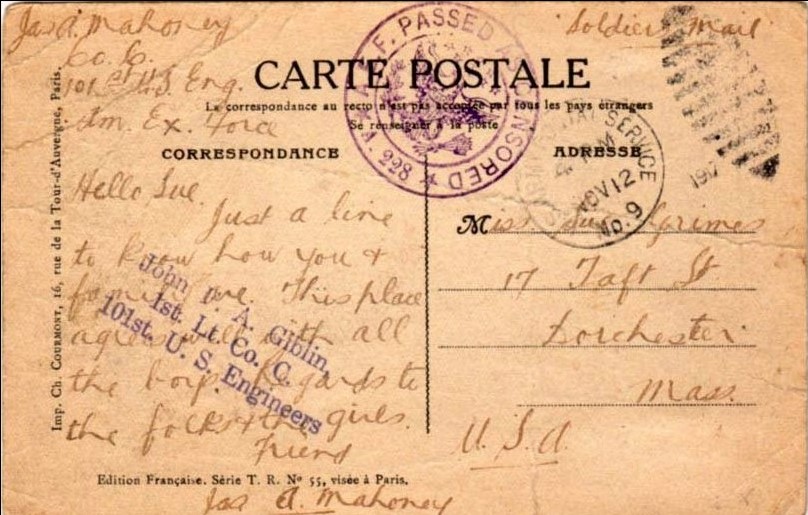 Jas A. Mahoney
Co. C.
101st U.S. Eng.
Am. Ex. Force
Soldiers Mail
A. E. F. PASSED AS CENSORED ★ 228 ★
CARTE POSTALE
La correspondance au recto n'est pas acceptée par tous les pays étrangers
Se renseigner à la poste
CORRESPONDANCE
ADRESSE
SERVICE
NOV 12
No. 9
1917
Hello Sue.
Just a line
to know how you &
family are. This place
agrees well with all
the boys. Regards to
the folks & the girls.
Friend
Jas A. Mahoney
John A. Giblin,
1st. Lt. Co. C.
101st. U. S. Engineers
Miss Sue Grimes
17 Taft St
Dorchester
Mass.
U.S.A.
Imp. Ch. COURMONT, 16, rue de la Tour-d'Auvergne, Paris.
Edition Française. Série T. R. No 55, visée à Paris.